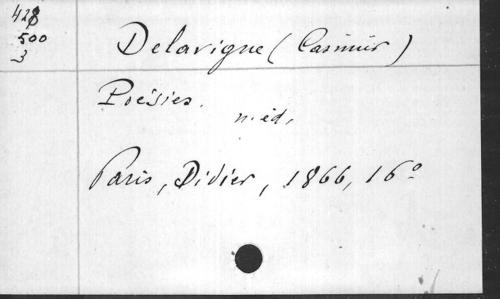 428
500
3
Delavigne (Casimir)
Poésies.
n. éd,
Paris, Didier, 1866, 16º